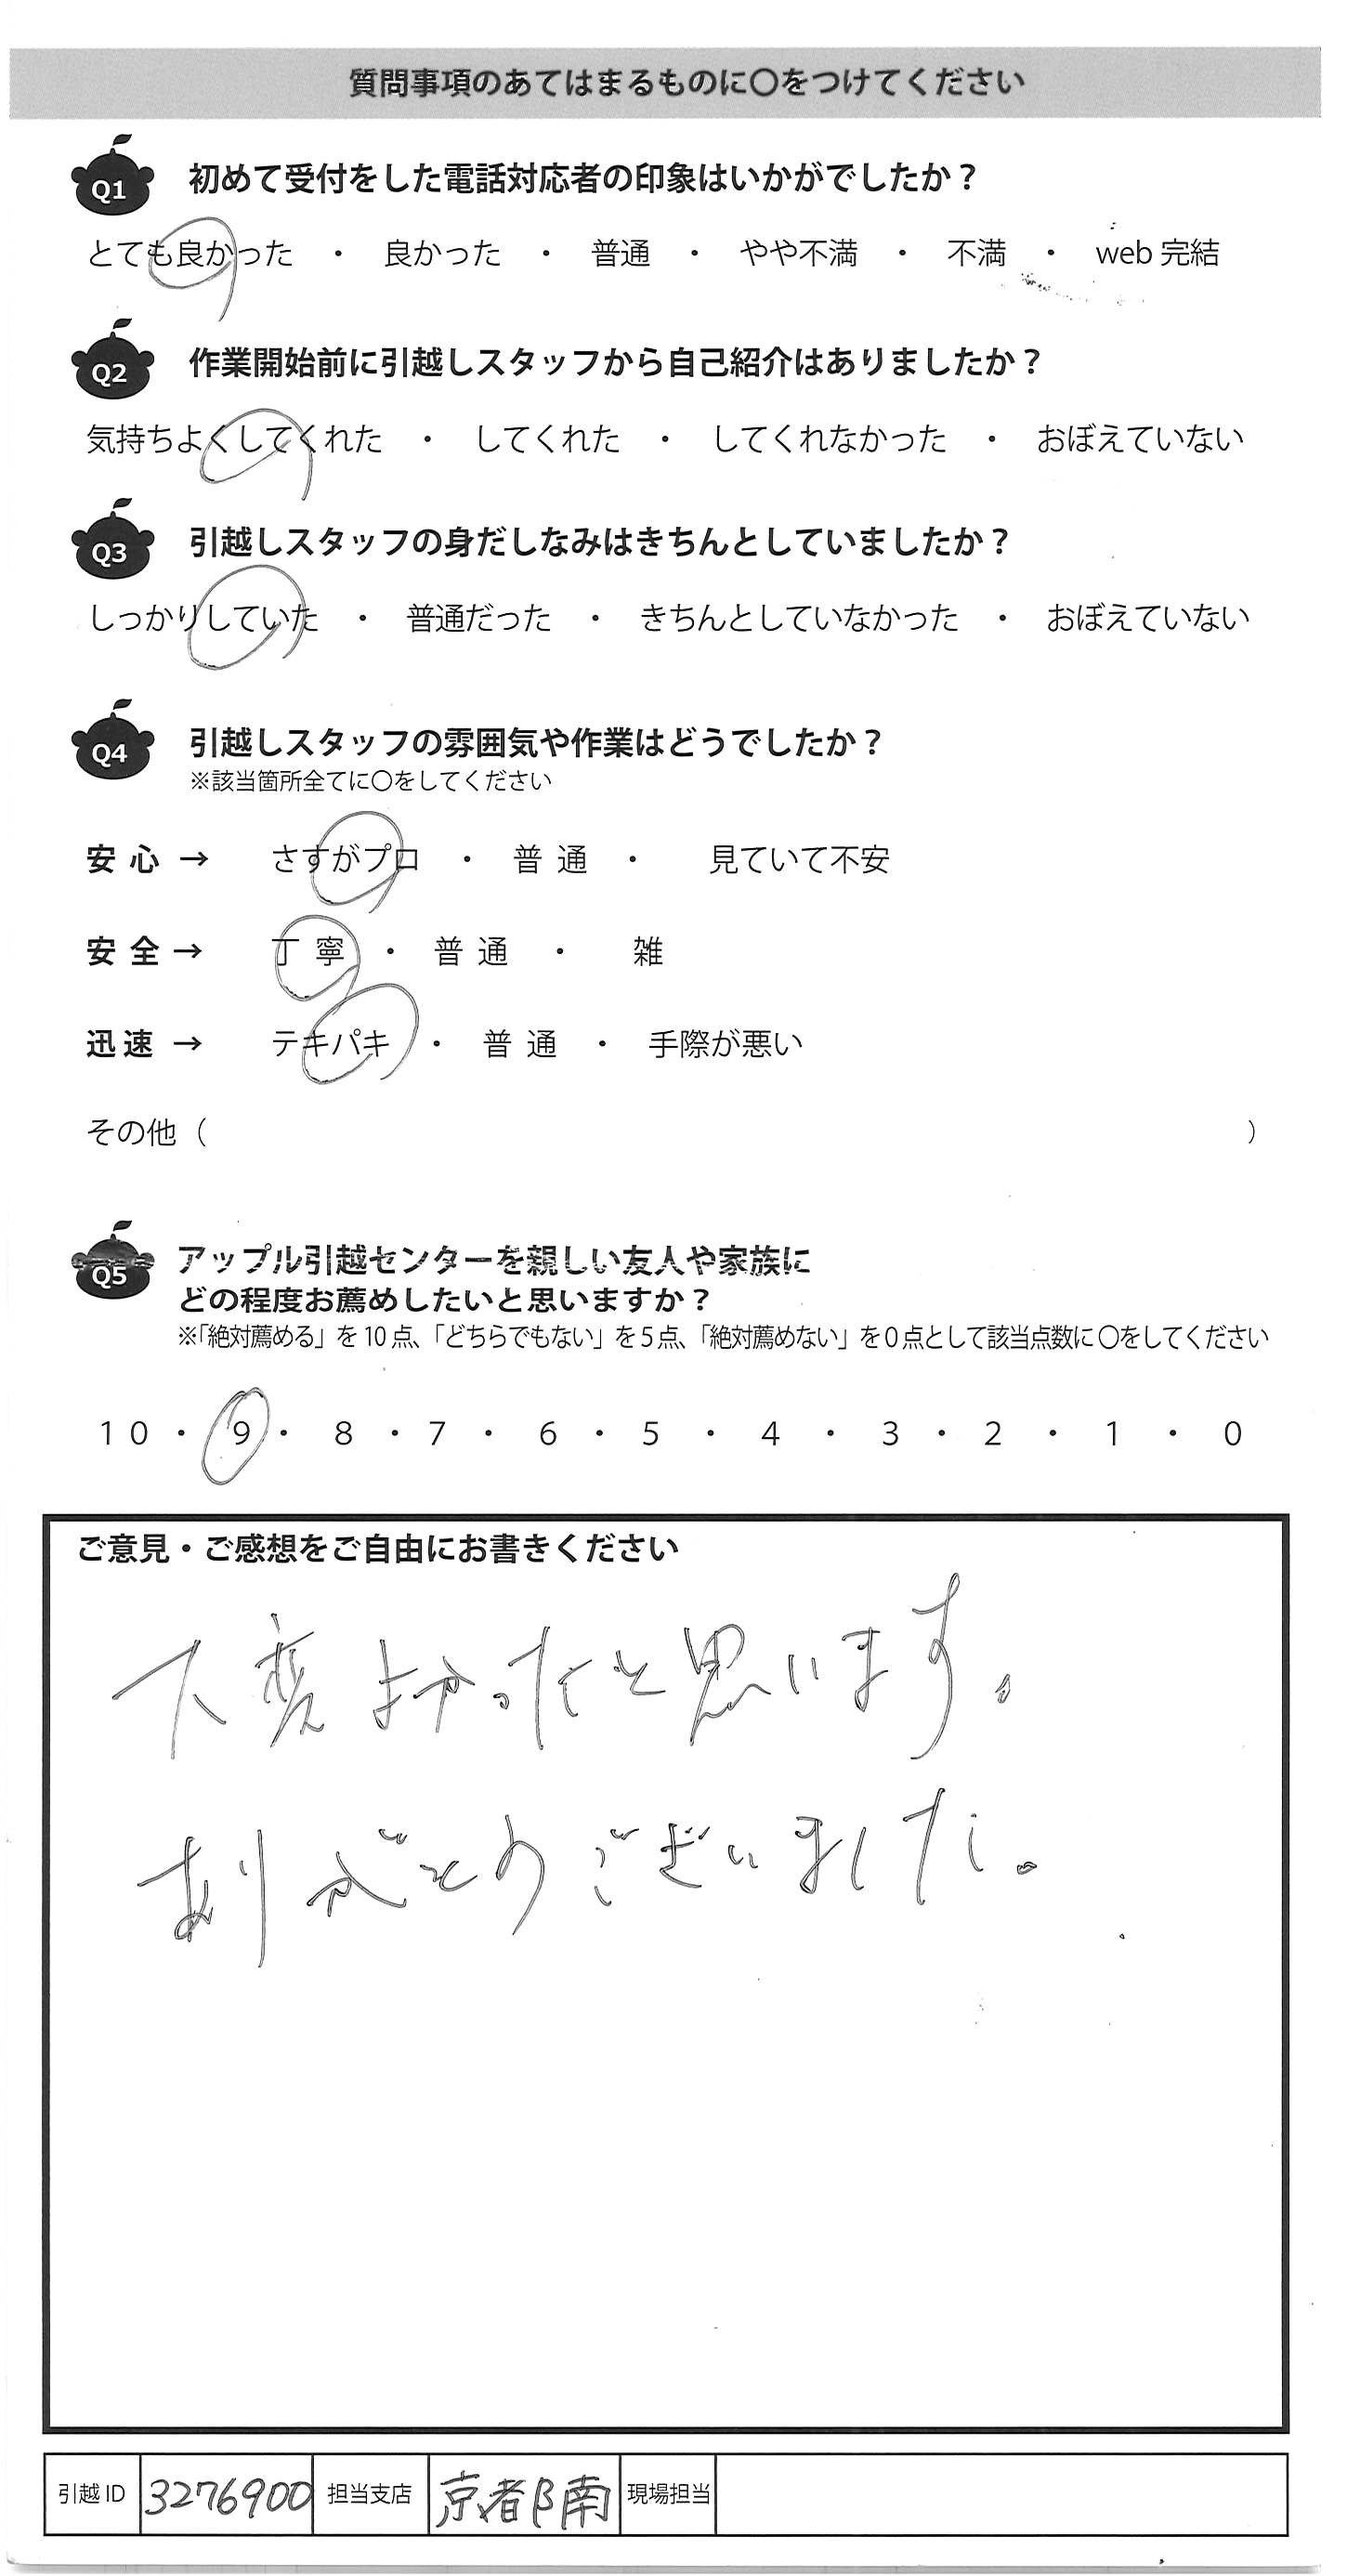 質問事項のあてはまるものに〇をつけてください
Q1 初めて受付をした電話対応者の印象はいかがでしたか？
とても良かった ・ 良かった ・ 普通 ・ やや不満 ・ 不満 ・ web 完結
Q2 作業開始前に引越しスタッフから自己紹介はありましたか？
気持ちよくしてくれた ・ してくれた ・ してくれなかった ・ おぼえていない
Q3 引越しスタッフの身だしなみはきちんとしていましたか？
しっかりしていた ・ 普通だった ・ きちんとしていなかった ・ おぼえていない
Q4 引越しスタッフの雰囲気や作業はどうでしたか？
※該当箇所全てに〇をしてください
安心 → さすがプロ ・ 普通 ・ 見ていて不安
安全 → 丁寧 ・ 普通 ・ 雑
迅速 → テキパキ ・ 普通 ・ 手際が悪い
その他（ ）
Q5 アップル引越センターを親しい友人や家族に
どの程度お薦めしたいと思いますか？
※「絶対薦める」を 10 点、「どちらでもない」を 5 点、「絶対薦めない」を 0 点として該当点数に 〇をしてください
10 ・ 9 ・ 8 ・ 7 ・ 6 ・ 5 ・ 4 ・ 3 ・ 2 ・ 1 ・ 0
ご意見・ご感想をご自由にお書きください
大変よかったと思います。
ありがとうございました。
引越 ID 3276900 担当支店 京都南 現場担当